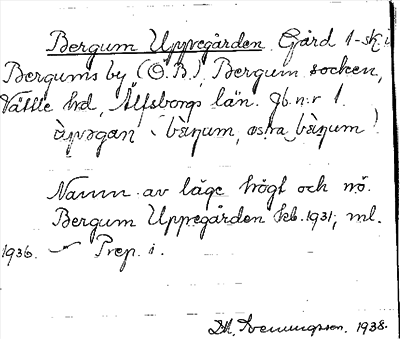 Bergum Uppegården. Gård 1-sk. i
Bergums by (Ö.B.), Bergum socken,
Vättle hd, Älfsborgs län. Jb.n:r 1.
àpəgan i bærum, østra bærum!
Namn av läge högt och nö.
Bergum Uppegården kb. 1931; ml.
1936. — Prep. i.
D.H. Svenungsson. 1938.